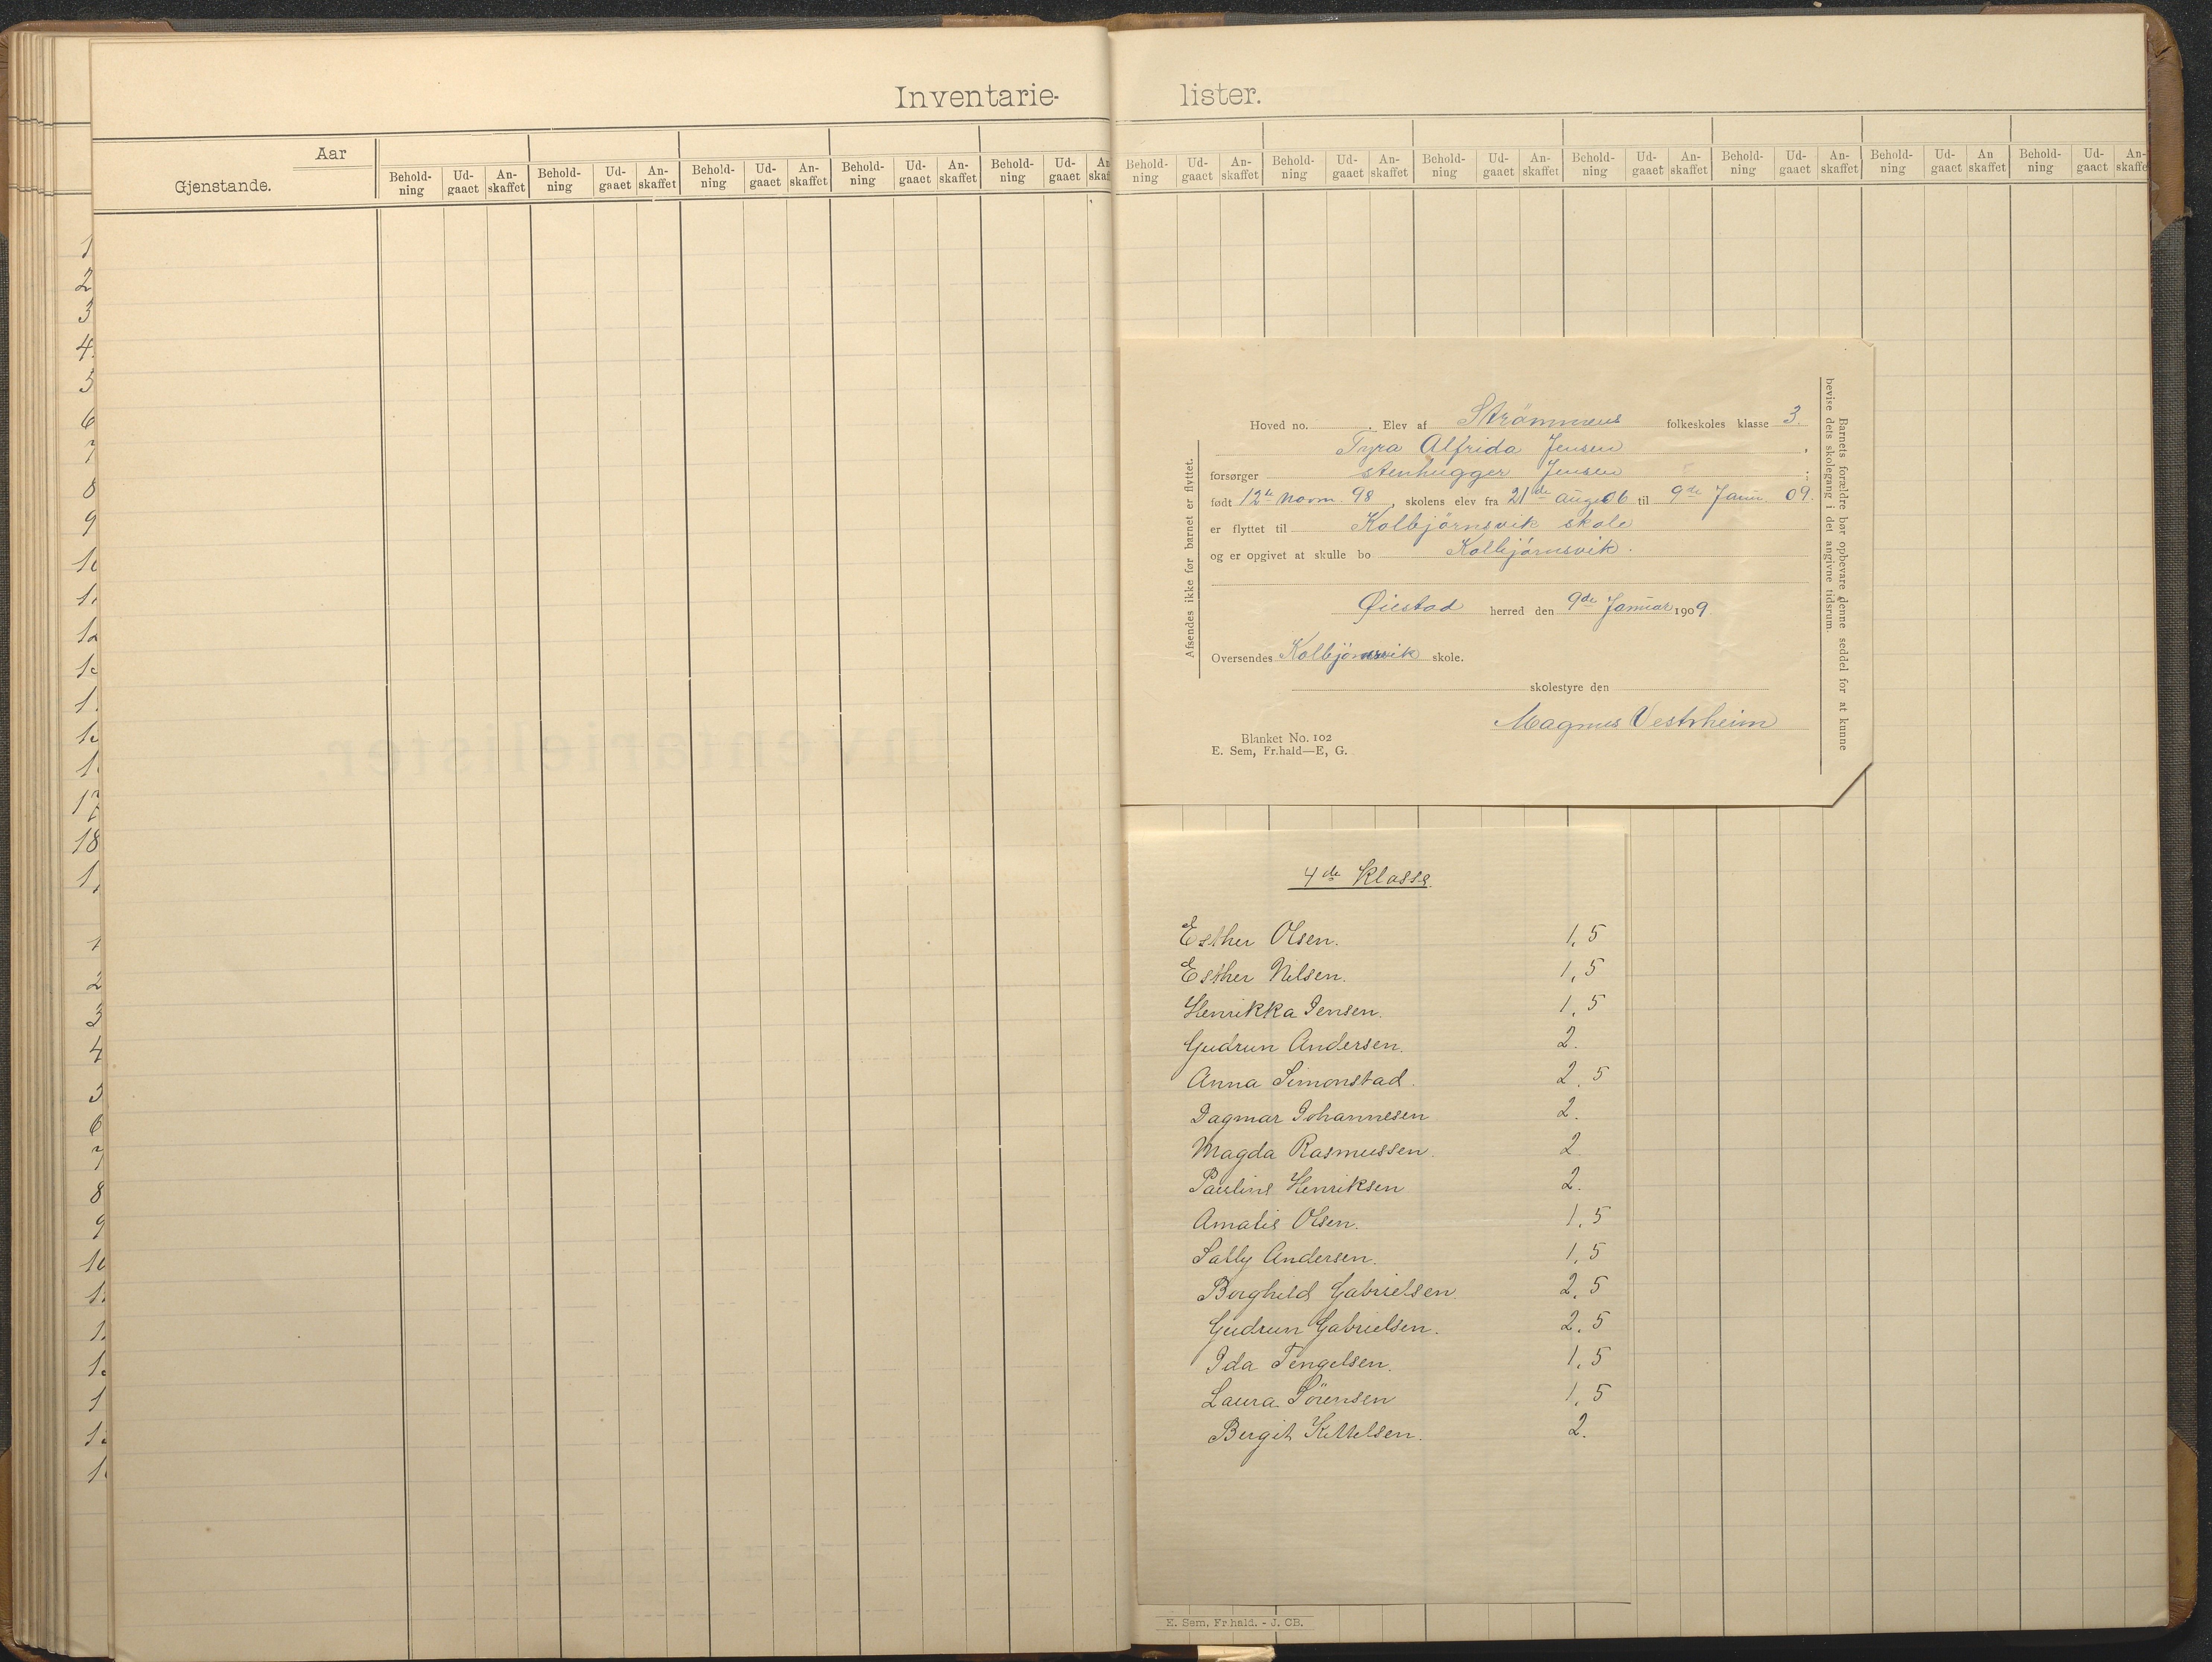 Inventarie-
lister.
Gjenstande.
Aar
Behold-ning Ud-gaaet An-skaffet Behold-ning Ud-gaaet An-skaffet Behold-ning Ud-gaaet An-skaffet Behold-ning Ud-gaaet An-skaffet Behold-ning Ud-gaaet An skaf
Behold-ning Ud-gaaet An-skaffet Behold-ning Ud-gaaet An-skaffet Behold-ning Ud-gaaet An-skaffet Behold-ning Ud-gaaet An-skaffet Behold-ning Ud-gaaet An-skaffet Behold-ning Ud-gaaet An skaffet Behold-ning Ud-gaaet An-skaffe
1
2
3
4.
5
6
7
8
9
10
12
17
18
1
2
3
4
5
6
7
8
9
10
Hoved no. . Elev af Strømmens folkeskoles klasse 3.
Tyra Alfrida Jensen ,
forsørger stenhugger Jensen ;
født 12te novm. 98, skolens elev fra 21de aug. 06 til 9de Janu. 09.
er flyttet til Kolbjørnsvik skole
og er opgivet at skulle bo Kolbjørnsvik.
Øiestad herred den 9de Januar 1909.
Oversendes Kolbjørnsvik skole.
skolestyre den
Magnus Vestrheim
Blanket No. 102
E. Sem, Fr.hald—E, G.
Afsendes ikke før barnet er flyttet.
Barnets forældre bør opbevare denne seddel for at kunne
bevise dets skolegang i det angivne tidsrum.
4de Klasse
Esther Olsen. 1,5
Esther Nilsen. 1,5
Henrikka Jensen. 1,5
Gudrun Andersen. 2.
Anna Simonstad. 2,5
Dagmar Johannesen 2.
Magda Rasmussen. 2
Pauline Henriksen 2.
Amalie Olsen. 1,5
Sally Andersen. 1,5
Borghild Gabrielsen 2,5
Gudrun Gabrielsen. 2,5
Ida Tengelsen. 1,5
Laura Sørensen 1,5
Bergit Kittelsen. 2.
E. Sem, Fr.hald. - J. CB.